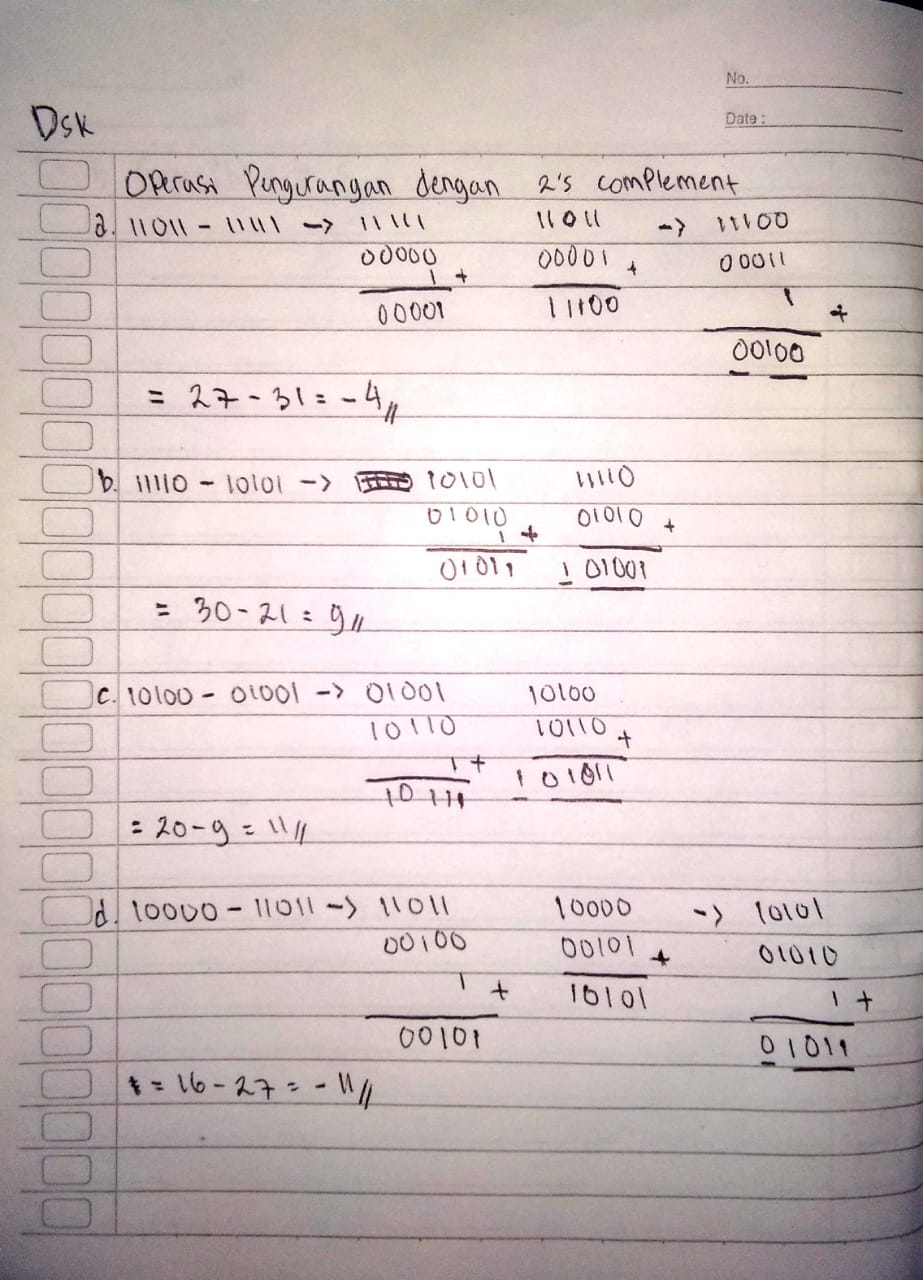 No.
Date :
Dsk
Operasi Pengurangan dengan 2's complement
a. 11011 - 11111 -> 11111 11011 -> 11100
00000 00001 + 00011
1 + 1 +
00001 11100
00100
= 27 - 31 = -4 //
b. 11110 - 10101 -> 10101 11110
01010 01010 +
1 +
01011 1 01001
= 30 - 21 = 9 //
c. 10100 - 01001 -> 01001 10100
10110 10110 +
1 + 1 01011
10111
= 20 - 9 = 11 //
d. 10000 - 11011 -> 11011 10000 -> 10101
00100 00101 + 01010
1 + 10101 1 +
00101 01011
= 16 - 27 = -11 //